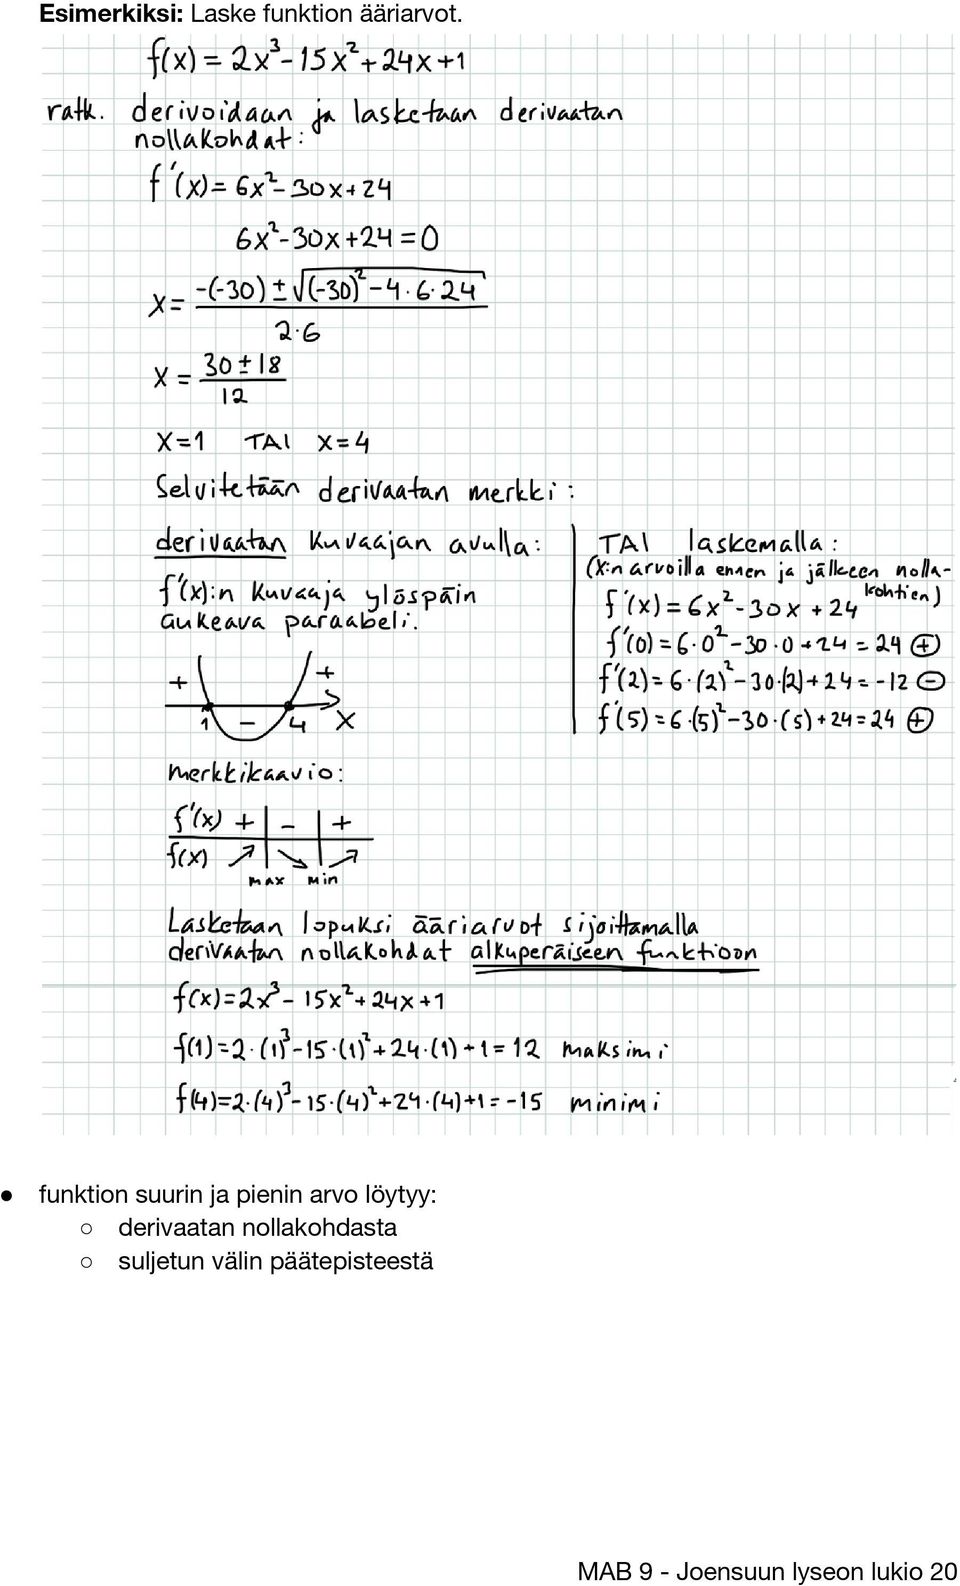 Esimerkiksi: Laske funktion ääriarvot.
f(x) = 2x³-15x²+24x+1
ratk. derivoidaan ja lasketaan derivaatan
nollakohdat:
f'(x)= 6x²-30x+24
6x²-30x+24=0
x= -(-30)±√(-30)²-4·6·24
2·6
x = 30±18
12
x=1 TAI x=4
Selvitetään derivaatan merkki:
derivaatan kuvaajan avulla:
f'(x):n kuvaaja ylöspäin
aukeava paraabeli.
+ +
1 - 4 x
TAI laskemalla:
(x:n arvoilla ennen ja jälkeen nolla-
kohtien)
f'(x)=6x²-30x+24
f'(0)=6·0²-30·0+24=24 ⊕
f'(2)=6·(2)²-30·(2)+24=-12 ⊖
f'(5)=6·(5)²-30·(5)+24=24 ⊕
merkkikaavio:
f'(x) + | - | +
f(x) ↗ | ↘ | ↗
max min
Lasketaan lopuksi ääriarvot sijoittamalla
derivaatan nollakohdat alkuperäiseen funktioon
f(x)=2x³-15x²+24x+1
f(1)=2·(1)³-15·(1)²+24·(1)+1=12 maksimi
f(4)=2·(4)³-15·(4)²+24·(4)+1=-15 minimi
● funktion suurin ja pienin arvo löytyy:
○ derivaatan nollakohdasta
○ suljetun välin päätepisteestä
MAB 9 - Joensuun lyseon lukio 20